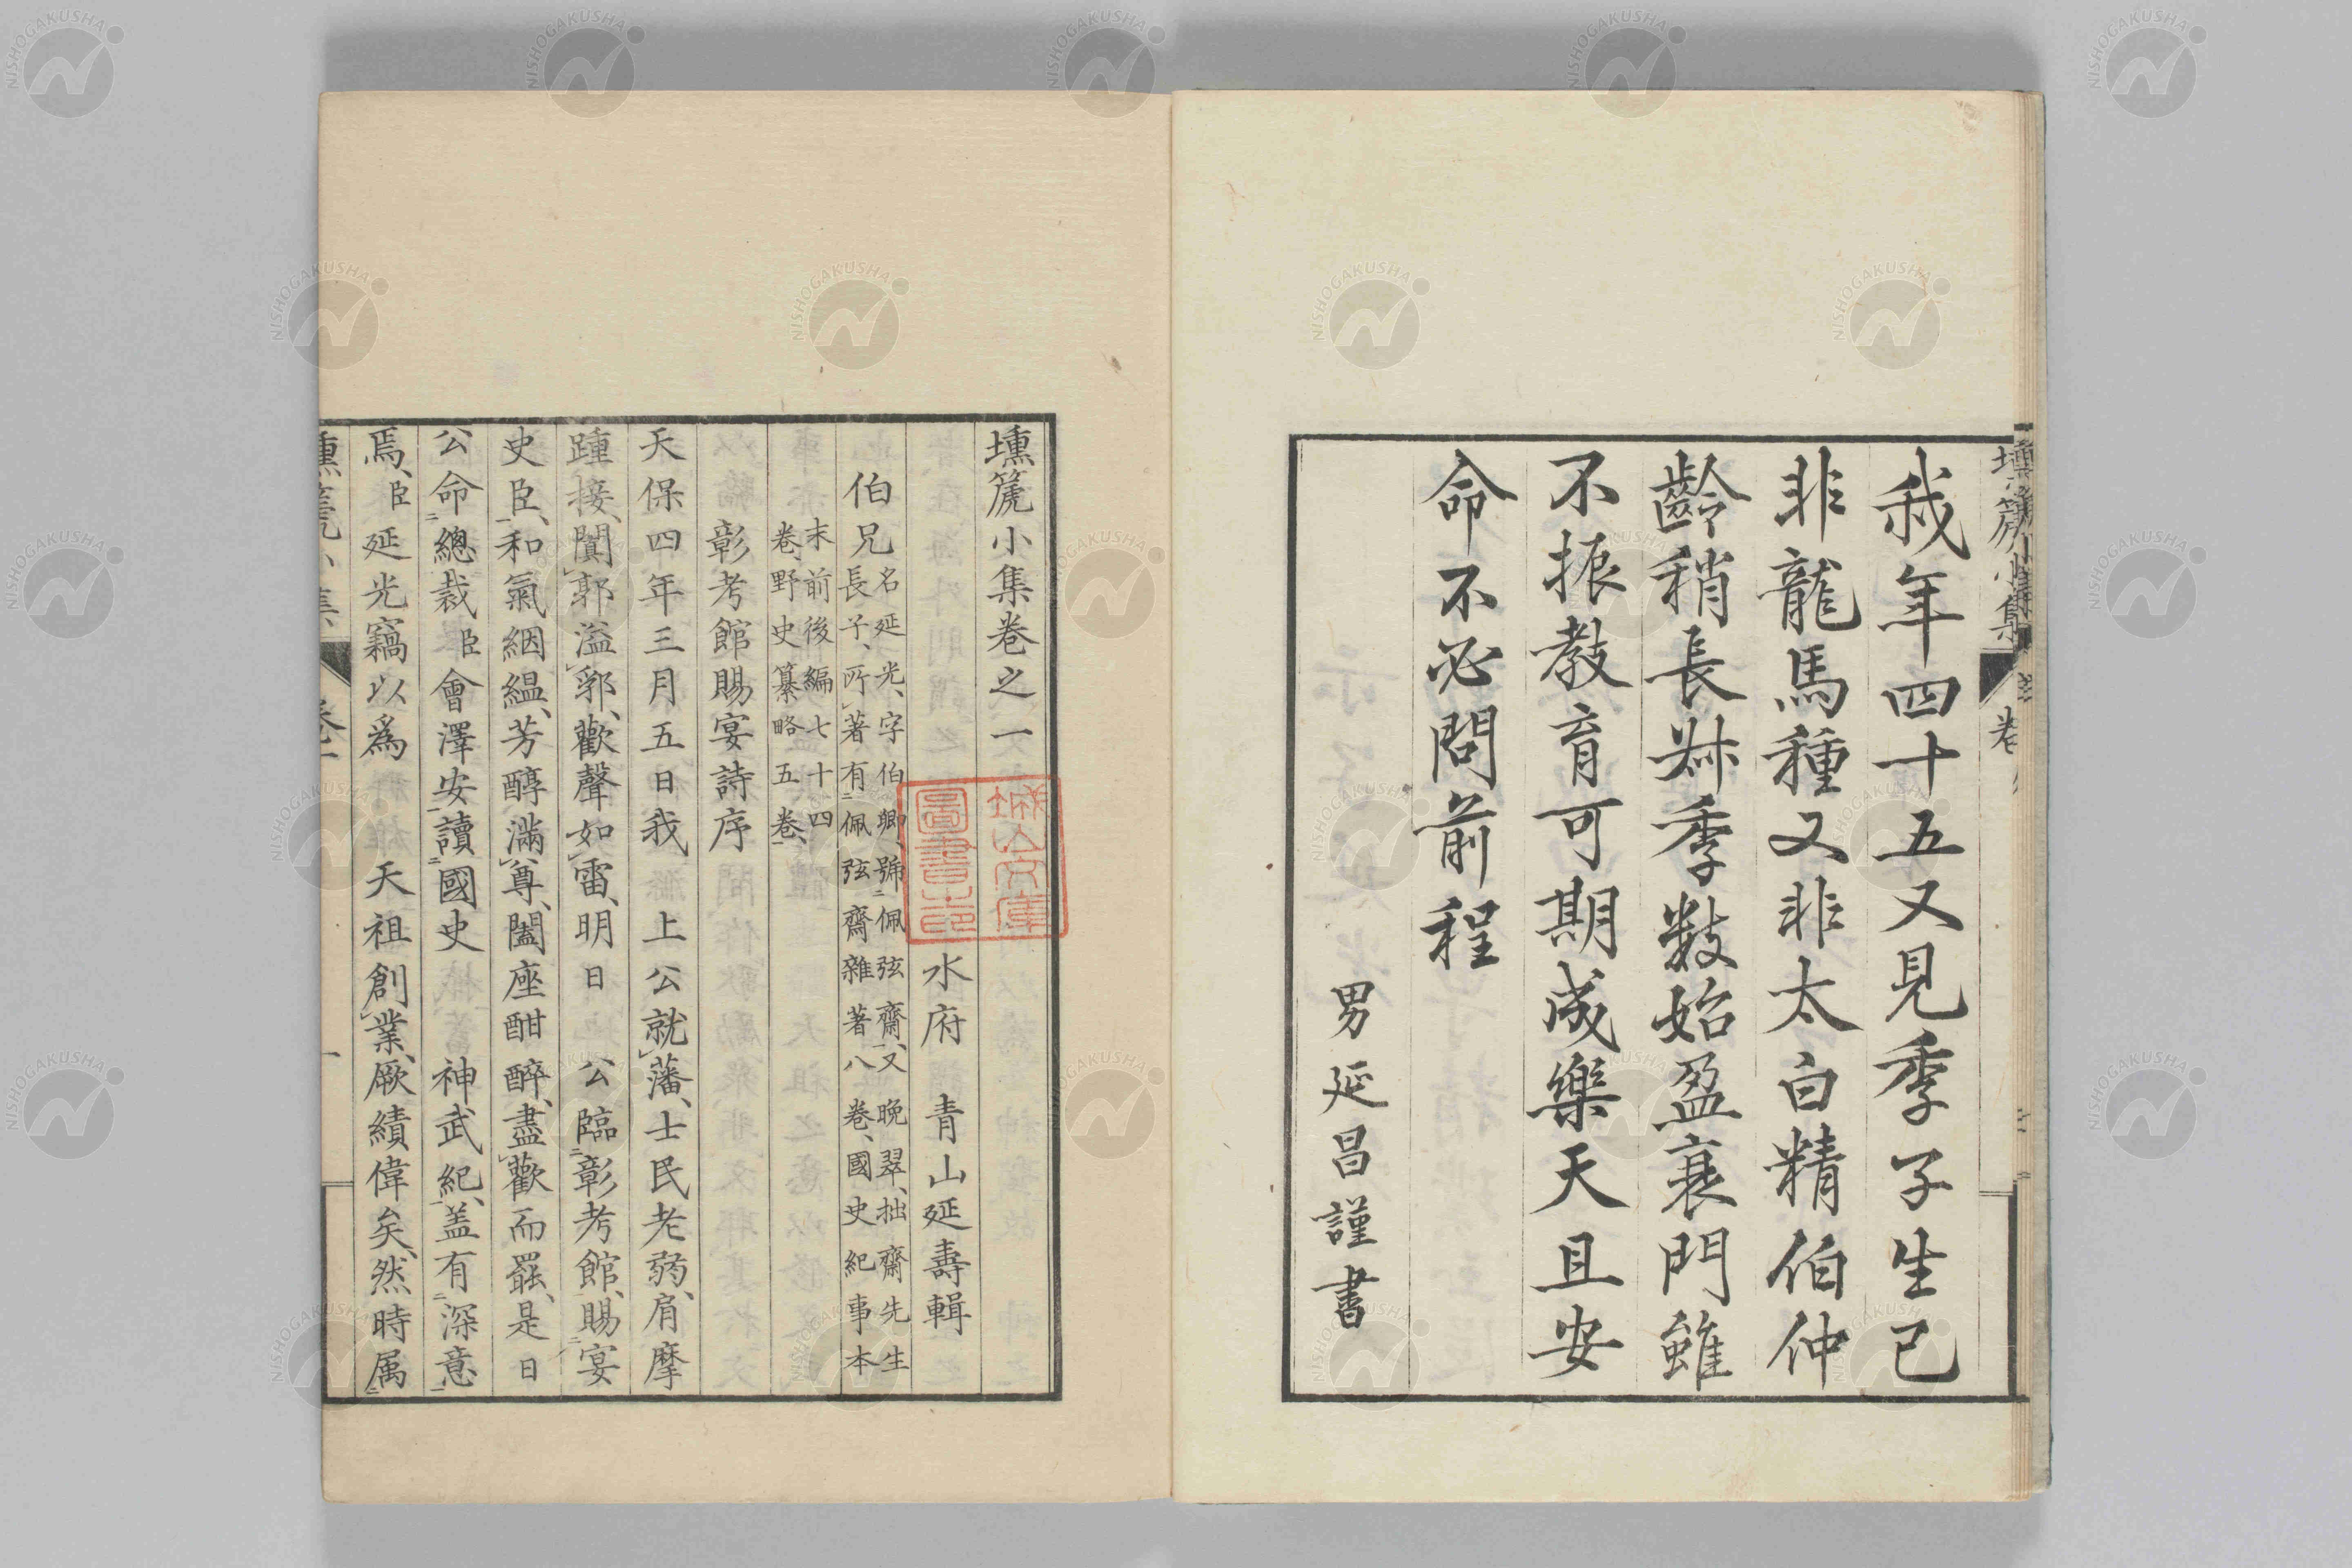 我年四十五又見季子生已
非龍馬種又非太白精伯仲
齡稍長叔季數始盈衰門雖
不振教育可期成樂天且安
命不必問前程
男延昌謹書
壎篪小集卷之一
水府 青山延壽輯
伯兄 名延光、字伯卿、號佩弦齋、又晚翠、拙齋先生
長子、所著有佩弦齋雜著八卷、國史紀事本
末前後編七十四
卷、野史纂略五卷、
彰考館賜宴詩序
天保四年三月五日我 上公就藩、士民老弱、肩摩
踵接、闐郭溢郛、歡聲如雷、明日 公臨彰考館、賜宴
史臣、和氣絪縕、芳醇滿尊、闔座酣醉、盡歡而罷、是日
公命總裁臣會澤安讀國史 神武紀、盖有深意
焉、臣延光竊以爲 天祖創業、厥績偉矣、然時属
壎篪小集 卷一 一
NISHOGAKUSHA